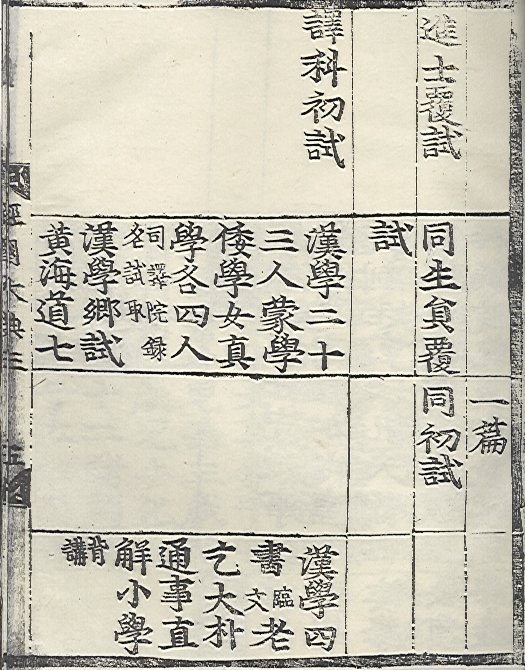 一篇
進士覆試
同生貟覆
試
同初試
譯科初試
漢學二十
三人蒙學
倭學女真
學各四人
司譯院錄
名試取
漢學鄉試
黃海道七
漢學四
書臨文老
乞大朴
通事直
解小學
背講
經國大典三
五